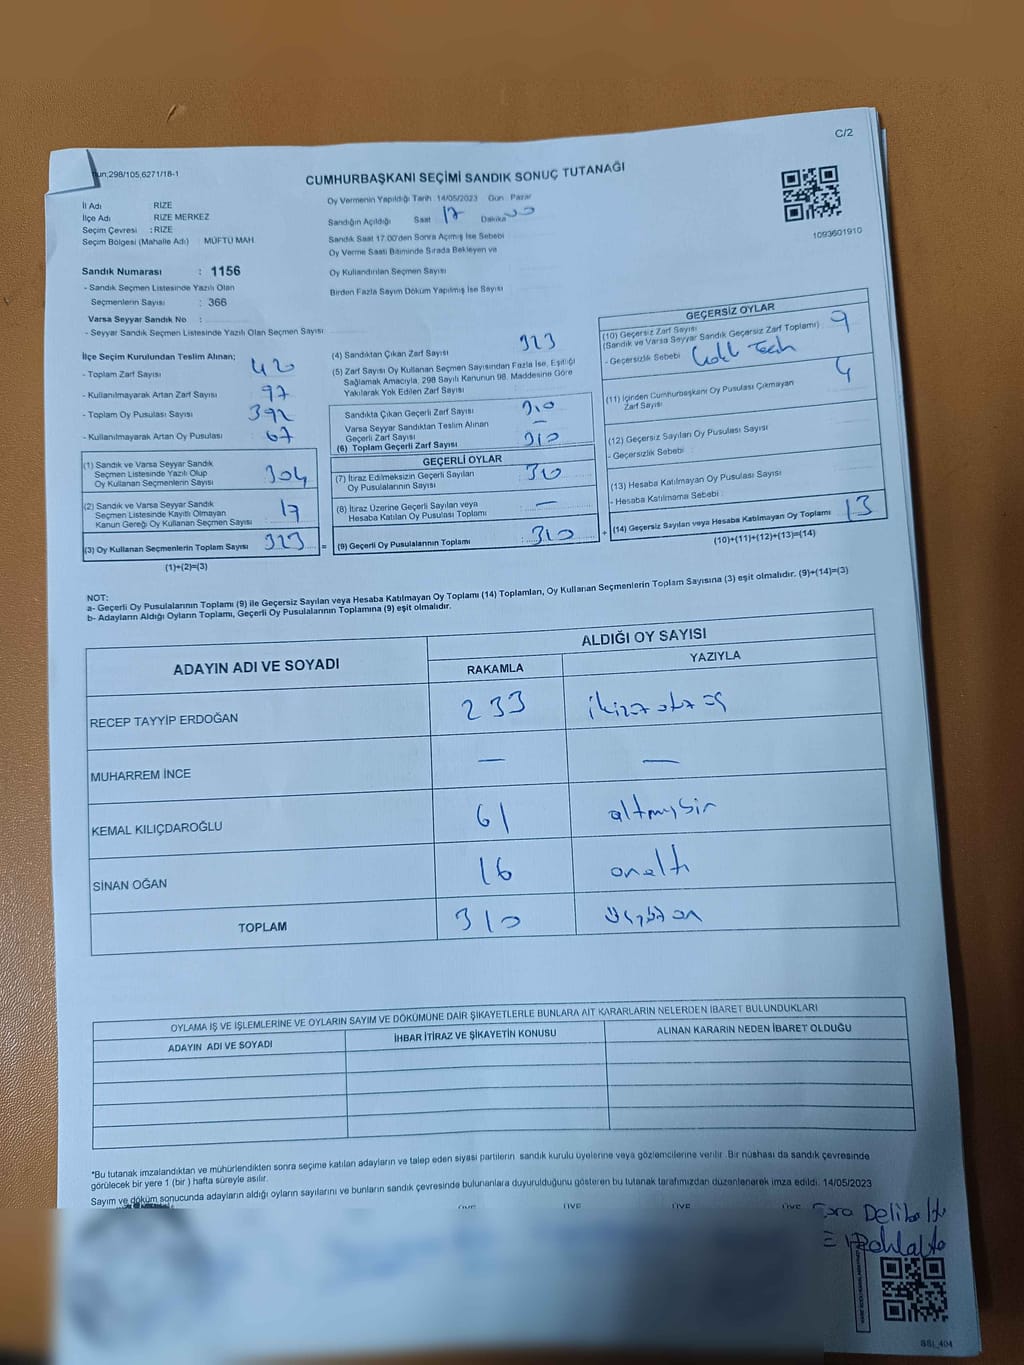 C/2
298/105,6271/18-1
CUMHURBAŞKANI SEÇİMİ SANDIK SONUÇ TUTANAĞI
İl Adı RİZE
İlçe Adı RİZE MERKEZ
Seçim Çevresi : RİZE
Seçim Bölgesi (Mahalle Adı) MÜFTÜ MAH
Oy Vermenin Yapıldığı Tarih 14/05/2023 Gün Pazar
Sandığın Açıldığı Saat 17 Dakika 00
Sandık Saat 17:00'den Sonra Açımış İse Sebebi
Oy Verme Saati Bitiminde Sırada Bekleyen ve
Oy Kullandırılan Seçmen Sayısı
Birden Fazla Sayım Döküm Yapılmış İse Sayısı
1093601910
Sandık Numarası : 1156
- Sandık Seçmen Listesinde Yazılı Olan
Seçmenlerin Sayısı : 366
Varsa Seyyar Sandık No :
- Seyyar Sandık Seçmen Listesinde Yazılı Olan Seçmen Sayısı
İlçe Seçim Kurulundan Teslim Alınan;
- Toplam Zarf Sayısı 420
- Kullanılmayarak Artan Zarf Sayısı 97
- Toplam Oy Pusulası Sayısı 392
- Kullanılmayarak Artan Oy Pusulası 67
(1) Sandık ve Varsa Seyyar Sandık
Seçmen Listesinde Yazılı Olup
Oy Kullanan Seçmenlerin Sayısı 304
(2) Sandık ve Varsa Seyyar Sandık
Seçmen Listesinde Kayıtlı Olmayan
Kanun Gereği Oy Kullanan Seçmen Sayısı 17
(3) Oy Kullanan Seçmenlerin Toplam Sayısı 323 =
(1)+(2)=(3)
(4) Sandıktan Çıkan Zarf Sayısı 323
(5) Zarf Sayısı Oy Kullanan Seçmen Sayısından Fazla İse, Eşitliği
Sağlamak Amacıyla, 298 Sayılı Kanunun 98. Maddesine Göre
Yakılarak Yok Edilen Zarf Sayısı
Sandıkta Çıkan Geçerli Zarf Sayısı 310
Varsa Seyyar Sandıktan Teslim Alınan
Geçerli Zarf Sayısı —
(6) Toplam Geçerli Zarf Sayısı 310
GEÇERLİ OYLAR
(7) İtiraz Edilmeksizin Geçerli Sayılan
Oy Pusulalarının Sayısı 310
(8) İtiraz Üzerine Geçerli Sayılan veya
Hesaba Katılan Oy Pusulası Toplamı —
(9) Geçerli Oy Pusulalarının Toplamı : 310 +
GEÇERSİZ OYLAR
(10) Geçersiz Zarf Sayısı
(Sandık ve Varsa Seyyar Sandık Geçersiz Zarf Toplamı) 9
- Geçersizlik Sebebi
(11) İçinden Cumhurbaşkanı Oy Pusulası Çıkmayan
Zarf Sayısı 4
(12) Geçersiz Sayılan Oy Pusulası Sayısı
- Geçersizlik Sebebi
(13) Hesaba Katılmayan Oy Pusulası Sayısı
- Hesaba Katılmama Sebebi
(14) Geçersiz Sayılan veya Hesaba Katılmayan Oy Toplamı 13
(10)+(11)+(12)+(13)=(14)
NOT:
a- Geçerli Oy Pusulalarının Toplamı (9) ile Geçersiz Sayılan veya Hesaba Katılmayan Oy Toplamı (14) Toplamları, Oy Kullanan Seçmenlerin Toplam Sayısına (3) eşit olmalıdır. (9)+(14)=(3)
b- Adayların Aldığı Oyların Toplamı, Geçerli Oy Pusulalarının Toplamına (9) eşit olmalıdır.
ADAYIN ADI VE SOYADI ALDIĞI OY SAYISI
RAKAMLA YAZIYLA
RECEP TAYYİP ERDOĞAN 233 ikizotuzüç
MUHARREM İNCE — —
KEMAL KILIÇDAROĞLU 61 altmışbir
SİNAN OĞAN 16 onaltı
TOPLAM 310 üçyüzon
OYLAMA İŞ VE İŞLEMLERİNE VE OYLARIN SAYIM VE DÖKÜMÜNE DAİR ŞİKAYETLERLE BUNLARA AİT KARARLARIN NELERDEN İBARET BULUNDUKLARI
ADAYIN ADI VE SOYADI İHBAR İTİRAZ VE ŞİKAYETİN KONUSU ALINAN KARARIN NEDEN İBARET OLDUĞU
*Bu tutanak imzalandıktan ve mühürlendikten sonra seçime katılan adayların ve talep eden siyasi partilerin sandık kurulu üyelerine veya gözlemcilerine verilir. Bir nüshası da sandık çevresinde
görülecek bir yere 1 (bir ) hafta süreyle asılır.
Sayım ve döküm sonucunda adayların aldığı oyların sayılarını ve bunların sandık çevresinde bulunanlara duyurulduğunu gösteren bu tutanak tarafımızdan düzenlenerek imza edildi. 14/05/2023
ÜYE ÜYE ÜYE ÜYE